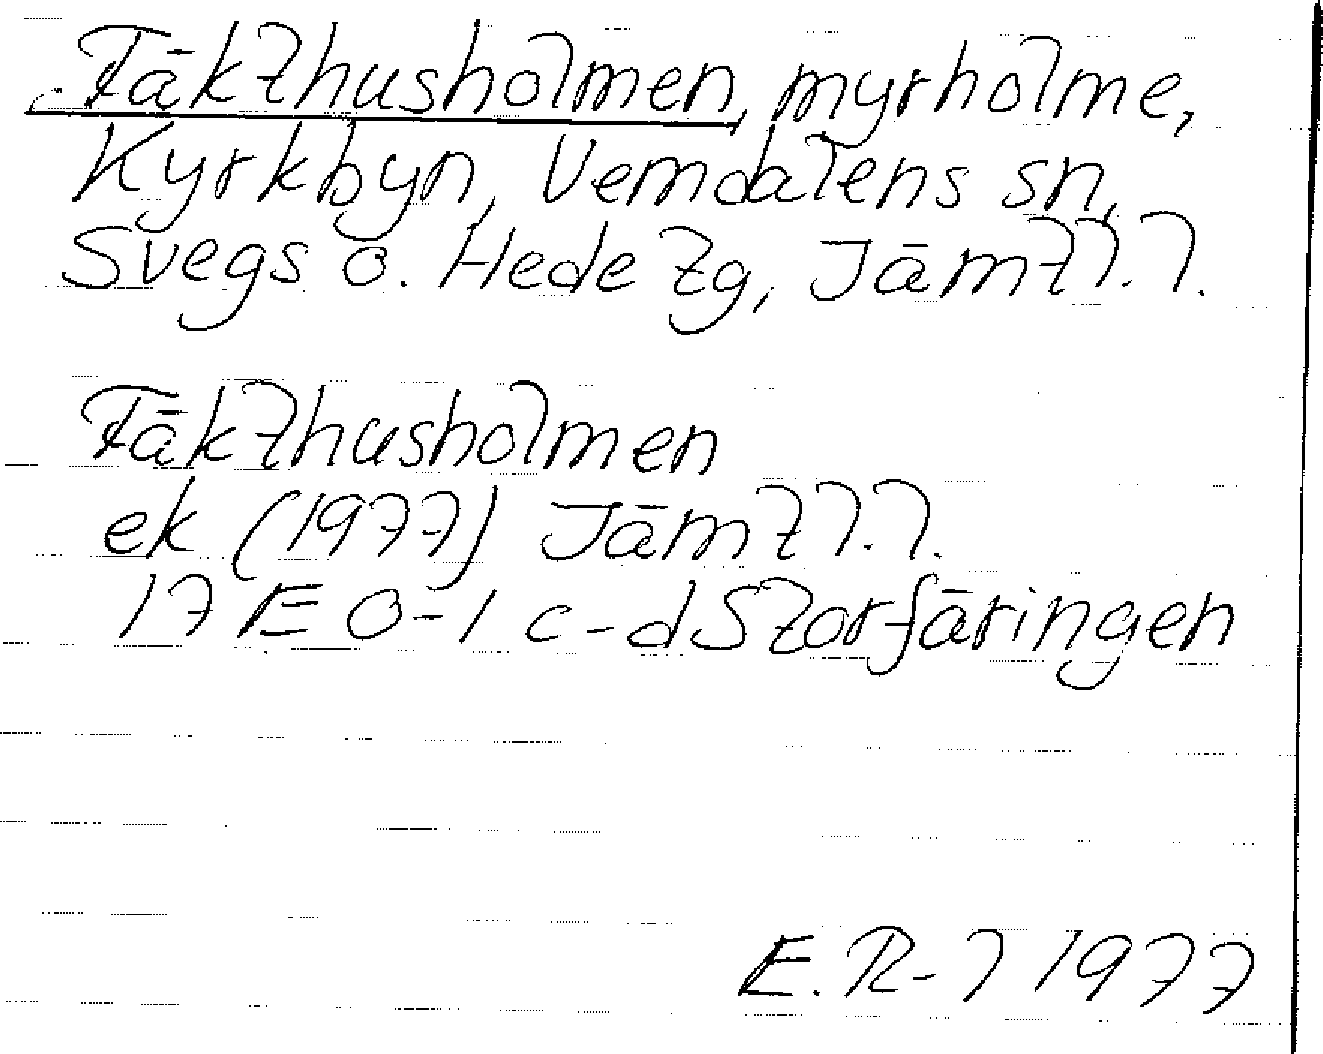 Fäkthusholmen, myrholme,
Kyrkbyn, Vemdalens sn,
Svegs o. Hede tg, Jämtl.l.
Fäkthusholmen
ek (1977) Jämtl.l.
17 E 0-1 c-d Storfäringen
E.R-l 1977